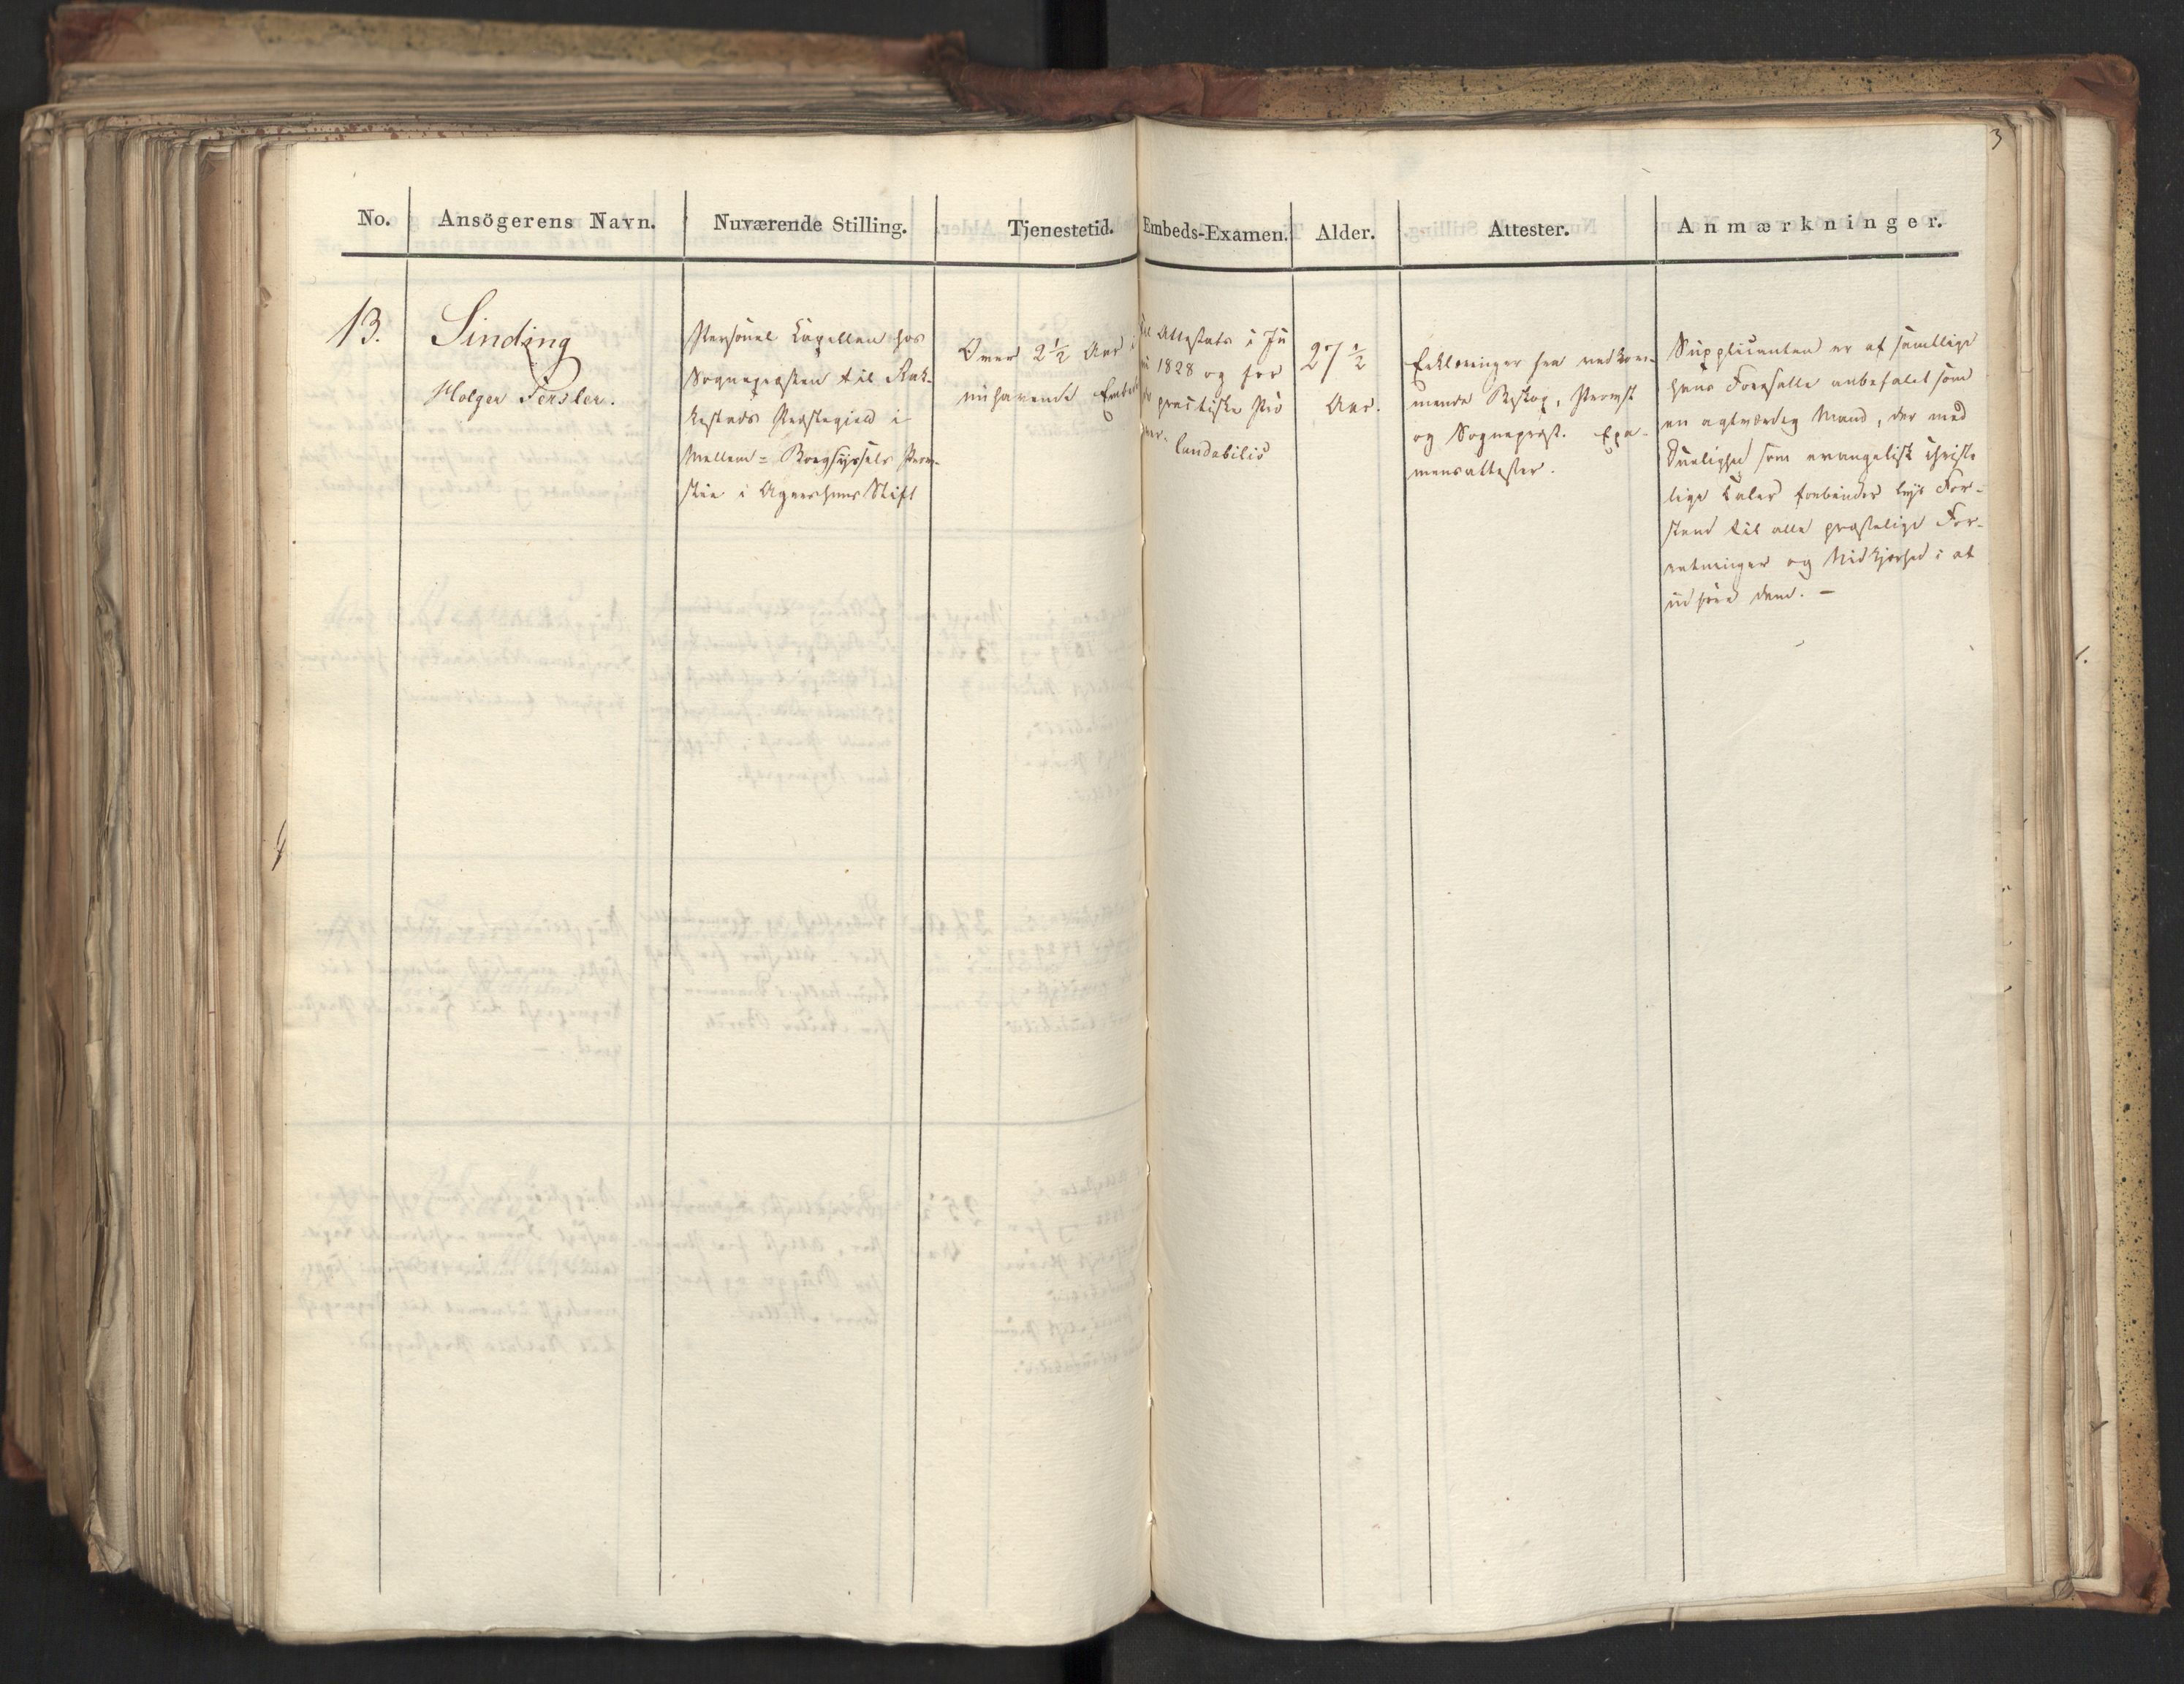 3
No. Ansögerens Navn. Nuværende Stilling. Tjenestetid. Embeds-Examen. Alder. Attester. Anmærkninger.
13.
Sinding
Holger Fersler.
Personel Capellan hos
Sognepræsten til Rak-
kestads Præstegield i
Mellem=Borgsyssels Prov-
stie i Agershuus Stift
Over 2½ Aar i
nuhavende Embede
Attestats i Ju
1828 og for
practiske Prö
laudabilis
27½
Aar.
Erklæringer fra vedkom-
mende Biskop, Provst
og Sognepræst. Exa-
mensattester.
Supplicanten er af samtlige
hans Foresatte anbefalet som
en agtværdig Mand, der med
Duelighed som evangelisk christe
lige Taler forbinder lyst For-
stand til alle præstelige For-
retninger og Nidkjerhed i at
udföre dem. –